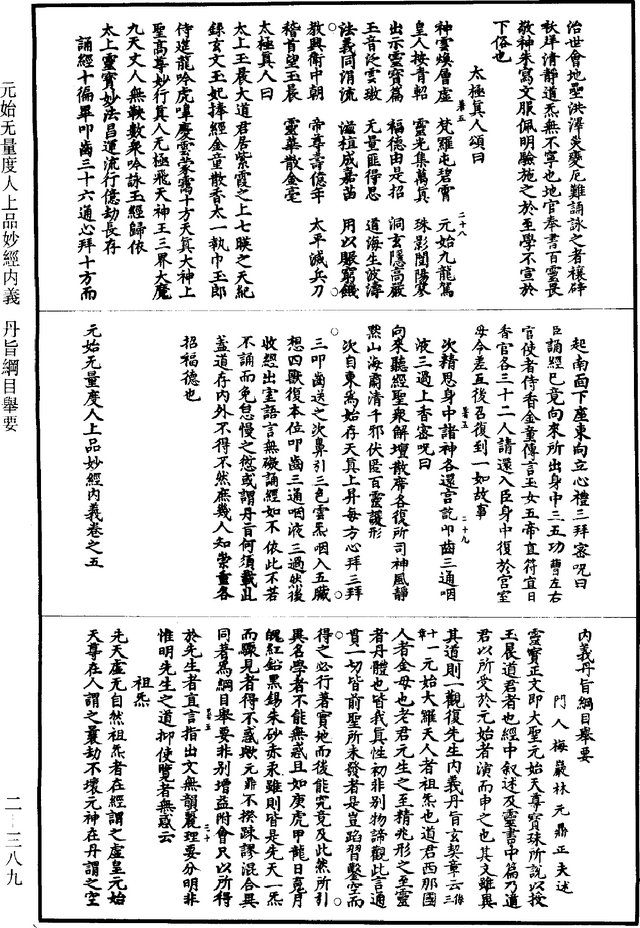 治世會地聖洪澤炎襲厄難誦詠之者穰碎
秋岸清靜道炁無不寧也地官奉書百靈畏
敬神朱寫文服佩明驗施之於至學不宣於
下俗也
太極真人頌曰
神雲煥層虛　梵羅屯碧霄　元始九龍駕
皇人按青軺　靈光集萬真　珠影閶陽寥
出示雲寶篇　福德由是招　洞玄隱高嚴
玉音泛雲璈　無量匪得思　道海生波濤
法義同涓流　滋植成嘉苗　用以賑窮饑
敎興衛中朝　帝尊壽億年　太平滅兵刀
稽首望玉晨　靈華散金毫
太極真人曰
太上玉晨大道君居紫霞之上七暎之天紀
錄玄文玉妃捧經金童散香太一執巾玉郎
侍筵龍吟虎嘷慶雲蒙靄十方天真大神上
聖高尊妙行真人元極飛天神王三界大魔
九天丈人無鞅數衆吟詠玉經歸依
太上靈寶妙法昌運流行億劫長存
誦經十徧畢叩齒三十六通心拜十方而
起南面下座東向立心禮三拜密呪曰
臣誦經已竟向來所出身中三五功曹左右
官使者侍香金童傳言玉女五帝直符直日
香官各三十二人請還入臣身中復於宮室
毋令差互後召復到一如故事
次精思身中諸神各還宮訖叩齒三通咽
液三過上香密呪曰
向來聽經聖衆解壇散席各復所司神風靜
默山海肅清千邪伏屈百靈護形
次自東爲始存天真上昇每方心拜三拜
三叩齒送之次鼻引三色雲炁咽入五臟
想四獸復本位叩齒三通咽液三過然後
收經出室語言無礙誦經如不依此不若
不誦而免怠慢之愆或謂丹旨何須載此
蓋道存内外不得不然庶幾人知崇重各
招福德也
元始无量度人上品妙經内義卷之五
内義丹旨綱目舉要
門人梅巖林元鼎正夫述
靈寶正文即大聖元始天尊寶珠所說以授
玉晨道君者也經中叙述及靈書中篇乃道
君以所受於元始者演而申之也其文雖異
其道則一觀復先生内義丹旨玄契章云
十一元始大羅天人者祖炁也道君西那國
人者金母也老君元生之至精兆形之至靈
者丹體也皆我真性初非別物諦觀此言通
貫一切皆前聖所未發者是豈蹈習鑿空而
得之必行著實地而後能究竟及此然所引
異名學者不能無惑且如庚虎甲龍日魂月
魄紅鉛黑錫朱砂赤汞雖則皆是先天一炁
而驟見者得不惑歟元鼎不揆踈謬混合異
同著爲綱目舉要非別增益附會只以所得
於先生者直言指出文無韻麗理要分明非
惟明先生之道抑使覽者無惑云
祖炁
先天虛无自然祖炁者在經謂之虛皇元始
天尊在人謂之曩劫不壞元神在丹謂之空
元始无量度人上品妙經内義　丹旨綱目舉要
二—三八九